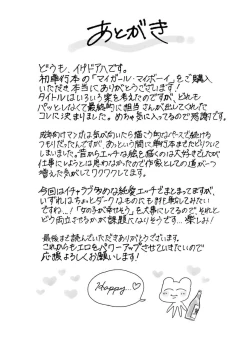 あとがき
どうも、イケドアハです。
初単行本の「マイガール・マイボーイ」をご購入
いただき本当にありがとうございます!
タイトルはいろいろ案を考えたのですが、どれも
パッとしなくて最終的に担当さんが出してくれた
コレに決まりました。めちゃ気に入ってるので感謝です。
成年向けマンガは気が向いたら描く的なペースで続ける
つもりだったんですが、あっという間に単行本までたどりついて
しまいました。昔からエッチな絵を描くのは大好きでしたが
仕事にしようとは思わなかったので作家としての道が一つ
増えた気がしてワクワクしてます。
今回はイチャラブ多めな純愛エッチでまとまってますが、
いずれはちょっとダークなものにも挑戦してみたい
ですね…!「女の子が幸せそう」を大事にしてるので、それと
どう両立させるかが課題になりそうです…楽しみ!
最後まで読んでいただきありがとうございます。
これからもエロをパワーアップさせていきたいので
応援よろしくお願いします!
Happy...♡